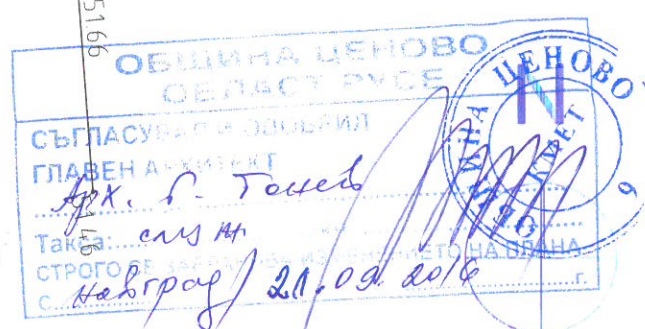 51.66
ОБЩИНА ЦЕНОВО
ОБЛАСТ РУСЕ
СЪГЛАСУВАЛ И ОДОБРИЛ
ГЛАВЕН АРХИТЕКТ
Арх. Тонев
Такса:
СТРОГО СЕ ЗАБРАНЯВА ИЗМЕНЕНИЕТО НА ПЛАНА
С Новград 21.09.2016 г.
ОБЩИНА ЦЕНОВО
КМЕТ
6
N
1.46